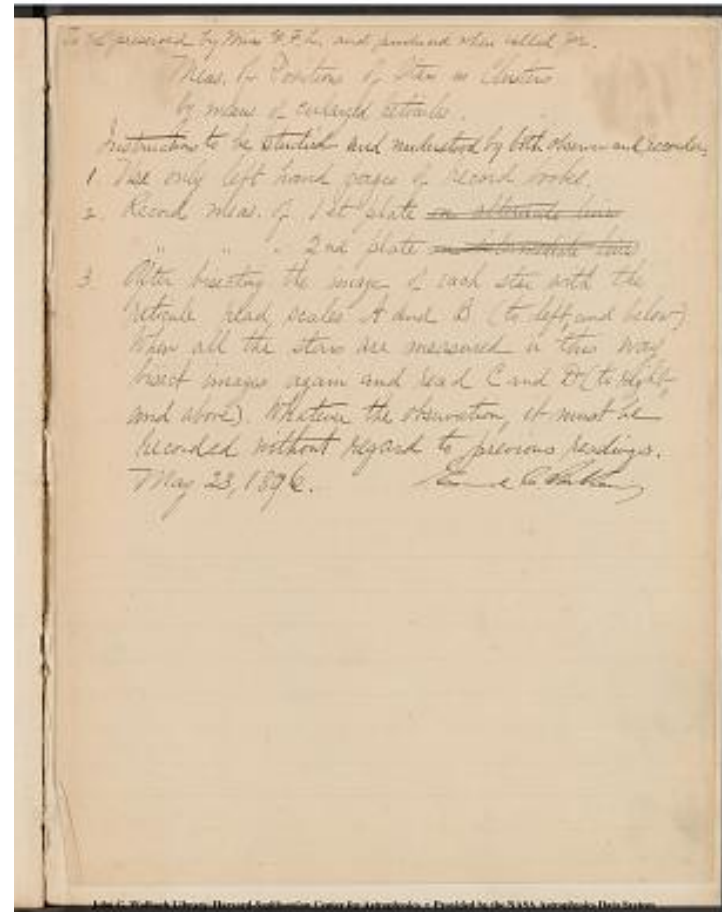 To be preserved by Miss E. F. L. and produced when called for.
Meas. for Positions of Stars in Clusters
by means of enlarged
Instructions to be studied and understood by both observer and recorder.
1. Use only left hand pages of record books.
2. Record meas. of 1st plate on alternate lines
" " " 2nd plate on intermediate lines
3. After bisecting the image of each star with the
reticule read scales A and B (to left and below)
When all the stars are measured in this way
bisect images again and read C and D (to right
and above). Whatever the observation, it must be
recorded without regard to previous readings.
May 23, 1896.
John G. Wolbach Library, Harvard-Smithsonian Center for Astrophysics • Provided by the NASA Astrophysics Data System